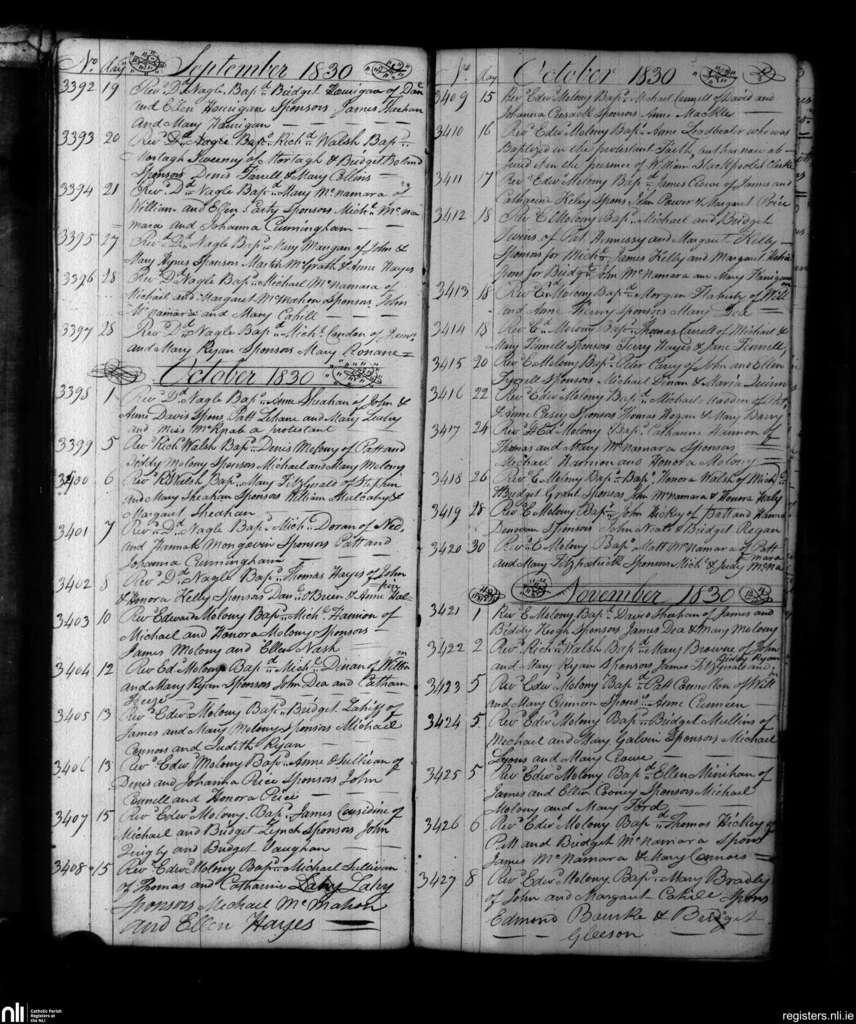 No. day September 1830
3392 19 Revd. Dl. Nagle Bapd. Bridget Hourigan of Danl.
and Ellen Hourigan Sponsors James Sheehan
and Mary Hourigan
3393 20 Revd. Dl. Nagle Bapd. Richd. Walsh Bapd.
Mortagh Sweeney of Mortagh & Bridget Boland
Sponsors Denis Farrell & Mary Collins
3394 21 Revd. Dl. Nagle Bapd. Mary McNamara of
William and Ellen Carty Sponsors Michl. McNa
mara and Johanna Cunningham
3395 27 Revd. Dl. Nagle Bapd. Mary Mangan of John &
Mary Hynes Sponsors Martin McGrath & Anne Hayes
3396 28 Revd. Dl. Nagle Bapd. Michael McNamara of
Michael and Margaret McMahon Sponsors John
McNamara and Mary Cahill
3397 28 Revd. Dl. Nagle Bapd. Michl. of
and Mary Ryan Sponsors Mary
October 1830
3398 1 Revd. Dl. Nagle Bapd. Anne Sheahan of John &
Anne Davis Spons. Patt Lehane and Mary Leahy
and Miss a protestant
3399 5 Revd. Richd. Walsh Bapd. Denis Molony of Patt and
Biddy Molony Sponsors Michael and Mary Molony
3400 6 Revd. R. Walsh Bapd. Mary Fitzgerald of John
and Mary Sheahan Sponsors William Mulcahy &
Margaret Sheahan
3401 7 Revd. Dl. Nagle Bapd. Michl. Doran of Ned
and Hannah Mongovin Sponsors Patt and
Johanna Cunningham
3402 8 Revd. Dl. Nagle Bapd. Thomas Hayes of John
& Honora Kelly Sponsors Danl. O'Brien & Anne
3403 10 Revd. Edward Molony Bapd. Michl. Hannon of
Michael and Honora Molony Sponsors
James Molony and Ellen Nash
3404 12 Revd. Ed. Molony Bapd. Michl. Dinan of Willm
and Mary Ryan Sponsors John Dea and Catham
3405 13 Revd. Edwd. Molony Bapd. Bridget Lahiff of
James and Mary Molony Sponsors Michael
Connors and Judith Ryan
3406 13 Revd. Edwd. Molony Bapd. Anne Sullivan of
Denis and Johanna Price Sponsors John
Connell and Honora Price
3407 15 Revd. Edwd. Molony Bapd. James Considine of
Michael and Bridget Lynch Sponsors John
Quigly and Bridget Vaughan
3408 15 Revd. Edwd. Molony Bapd. Michael Sullivan
of Thomas and Catharine Lahy Lahy
Sponsors Michael McMahon
and Ellen Hayes
No. day October 1830
3409 15 Revd. Edwd. Molony Bapd. Michael Connell of David and
Johanna Sponsors Anne
3410 16 Revd. Edwd. Molony Bapd. Anne Leadbeater who was
Baptized in the protestant Faith, but has now ab
jured it in the presence of William Clarke
3411 17 Revd. Edwd. Molony Bapd. James of James and
Catharine Kelly Spons. John Power & Margaret Price
3412 18 Revd. E Molony Bapd. Michael and Bridget
twins of Patt Hennessy and Margaret Kelly
Sponsors for Michl. James Kelly and Margaret
Spons for Bridget John McNamara and Mary
3413 18 Revd. E. Molony Bapd. Morgan Flaherty of Will
and Anne Sponsors Mary Dea
3414 18 Revd. E. Molony Bapd. Thomas Carroll of Michael &
Mary Fennell Sponsors Terry Hayes & Jane Fennell
3415 20 Revd. E. Molony Bapd. Peter Carey of John and Ellen
Sponsors Michael Dinan & Maria
3416 22 Revd. Edwd. Molony Bapd. Michael Madden of
& Anne Casey Sponsors Thomas Hogan & Mary Berry
3417 24 Revd. Ed. Molony Bapd. Catharine Hannon of
Thomas and Mary McNamara Sponsors
Michael Hannon and Honora Molony
3418 26 Revd. E. Molony Bapd. Honora Walsh of Michl.
& Bridget Grant Sponsors John McNamara & Honora
3419 28 Revd. E. Molony Bapd. John Hickey of Patt and Hanna
Donovan Sponsors John Nath & Bridget Regan
3420 30 Revd. E Molony Bapd. Matt McNamara of Patt
and Mary Fitzpatrick Sponsors Michl. & Judy McNa
mara
November 1830
3421 1 Revd. E Molony Bapd. David Sheahan of James and
Biddy Keogh Sponsors James Dea & Mary Molony
3422 2 Revd. Richd. Walsh Bapd. Mary Browne of John
and Mary Ryan Sponsors James Fitzgerald and
Biddy Ryan
3423 5 Revd. Edwd. Molony Bapd. Patt Connellan of Will
and Mary Cunneen Spons. Anne Cunneen
3424 5 Revd. Edwd. Molony Bapd. Bridget Mullins of
Michael and Mary Galvin Sponsors Michael
Lyons and Mary Crowe
3425 5 Revd. Edwd. Molony Bapd. Ellen Minihan of
James and Ellen Cooney Sponsors Michael
Molony and Mary Ford
3426 6 Revd. Edwd. Molony Bapd. Thomas Hickey of
Patt and Bridget McNamara Spons
James McNamara & Mary Connors
3427 8 Revd. Edwd. Molony Bapd. Mary Bradley
of John and Margaret Cahill Spons
Edmond Bourke & Bridget
Gleeson
nli Catholic Parish
Registers at
the NLI
registers.nli.ie